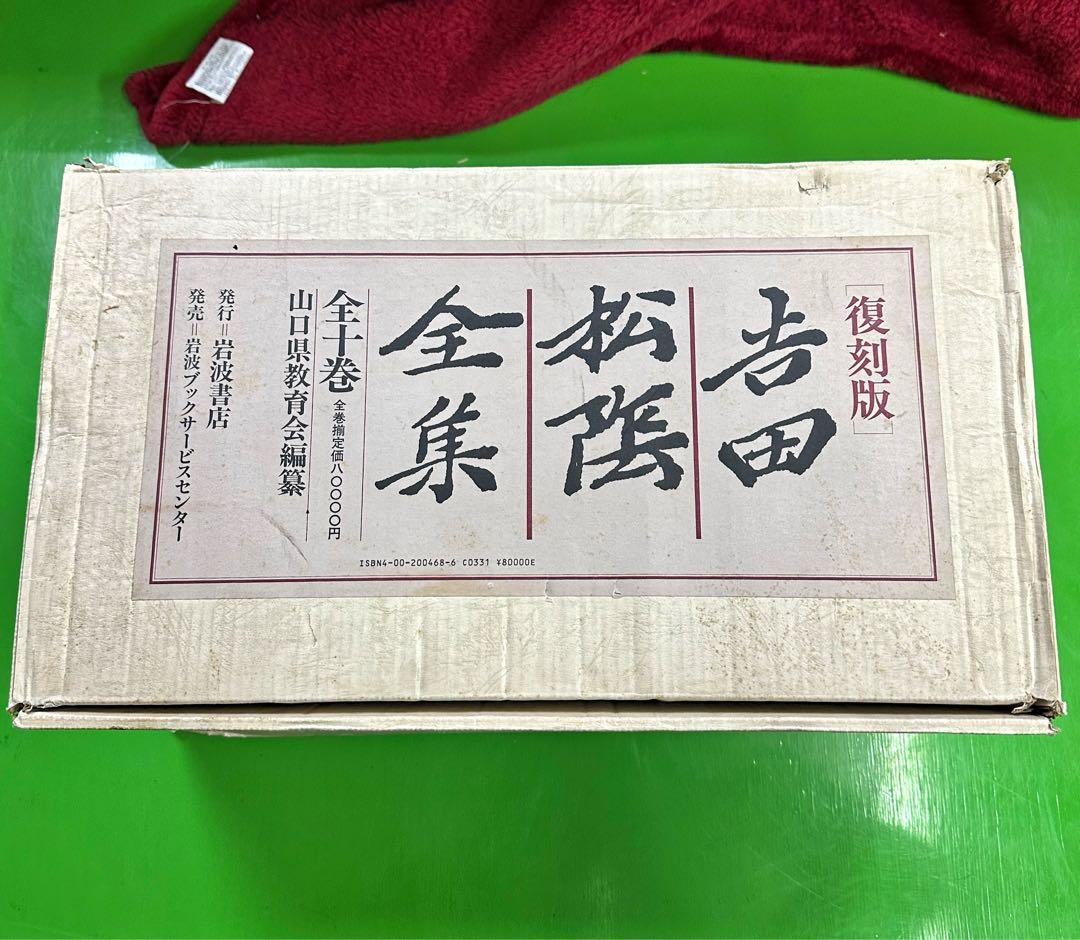 ［復刻版］
吉田
松陰
全集
全十巻 全巻揃定価八〇〇〇〇円
山口県教育会編纂
発行＝岩波書店
発売＝岩波ブックサービスセンター
ISBN4-00-200468-6 C0331 ¥80000E